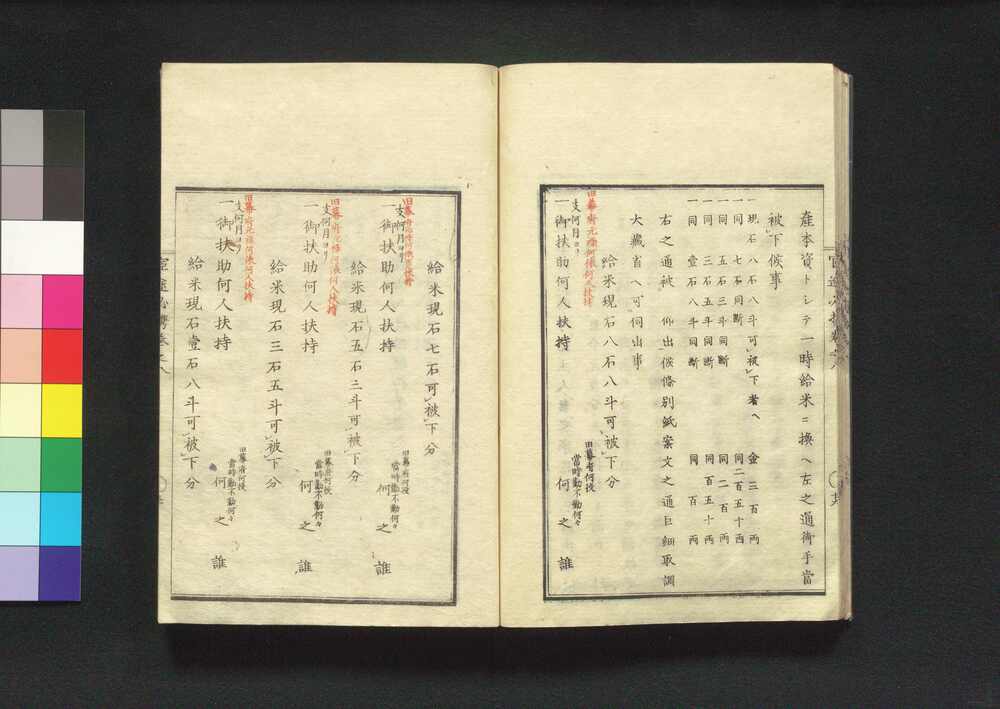 産本資トシテ一時給米ニ換ヘ左之通御手當
被下候事
一現石八石八斗可被下者ヘ 金三百両
一同七石同断 同二百五十両
一同五石三斗同断 同二百両
一同三石五斗同断 同百五十両
一同壹石八斗同断 同百両
右之通被 仰出候條別紙案文之通巨細取調
大藏省ヘ可伺出事
給米現石八石八斗可被下分
旧幕府元補何俵何人扶持
支何月ヨリ
一御扶助何人扶持
旧幕府何役
當時勤不勤何々
何之誰
給米現石七石可被下分
支何月ヨリ
一御扶助何人扶持
旧幕府何役
當時勤不勤何々
何之誰
給米現石五石三斗可被下分
旧幕府元補何俵何人扶持
支何月ヨリ
一御扶助何人扶持
旧幕府何役
當時勤不勤何々
何之誰
給米現石三石五斗可被下分
旧幕府元補何俵何人扶持
支何月ヨリ
一御扶助何人扶持
旧幕府何役
當時勤不勤何々
何之誰
給米現石壹石八斗可被下分